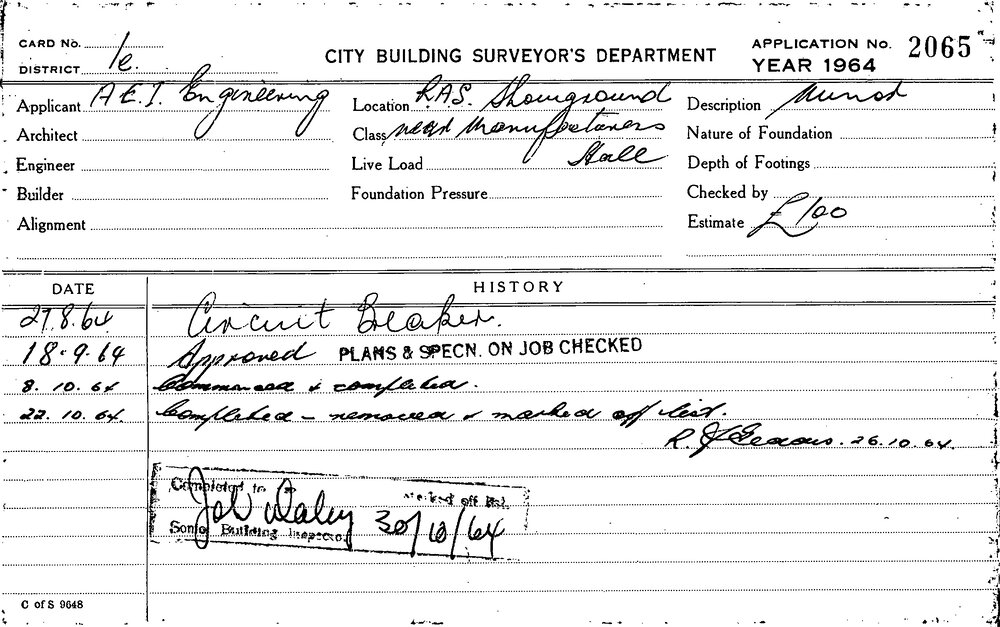 CARD No.
DISTRICT 1e.
CITY BUILDING SURVEYOR'S DEPARTMENT
APPLICATION No. 2065
YEAR 1964
Applicant A.E.I. Engineering
Location R.A.S. Showground
Description
Architect
Class near Manufacturers
Nature of Foundation
Engineer
Live Load Hall
Depth of Footings
Builder
Foundation Pressure
Checked by
Alignment
Estimate £100
DATE
HISTORY
27.8.64 Circuit Beaker.
18.9.64 Approved PLANS & SPECN. ON JOB CHECKED
8. 10. 64 Commenced & completed.
22. 10. 64. Completed - removed & marked off list.
R. 26.10.64.
Completed to marked off list.
Daley 30/10/64
Senior Building Inspector
C of S 9648